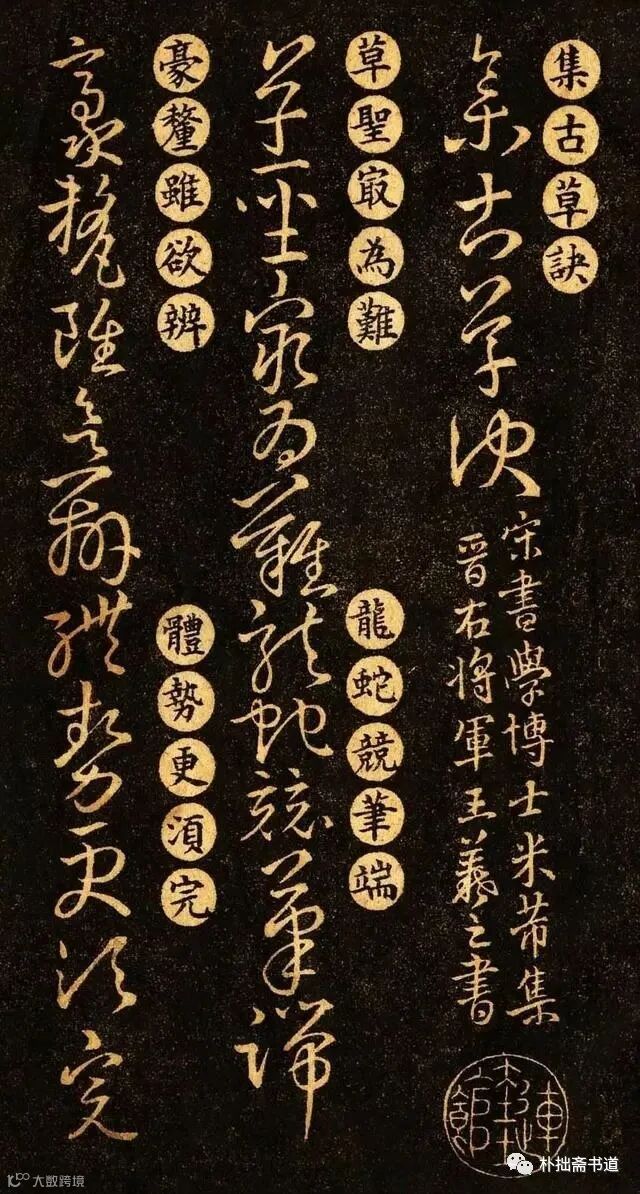 集古草訣
集古草訣
宋書學博士米芾集
晋右將軍王羲之書
草聖㝡為難
龍蛇競筆端
草聖㝡為難龍蛇競筆端
豪釐雖欲辨
體勢更湏完
豪釐雖欲辨體勢更湏完
大数跨境
朴拙斋书道